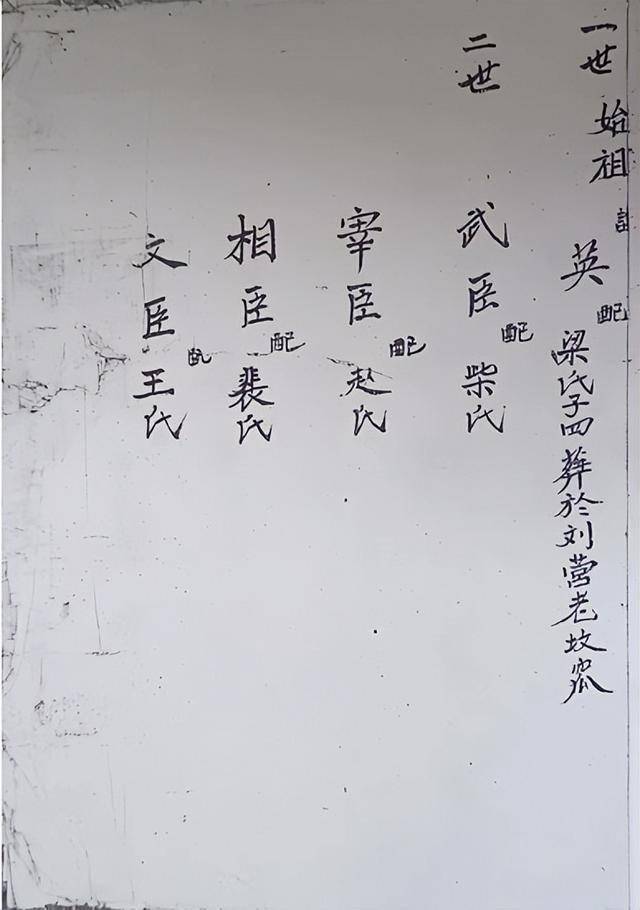 一世 始祖 諱 英 配 梁氏子四葬於刘营老坟窊
二世 武臣 配 柴氏
宰臣 配 赵氏
相臣 配 裴氏
文臣 配 王氏